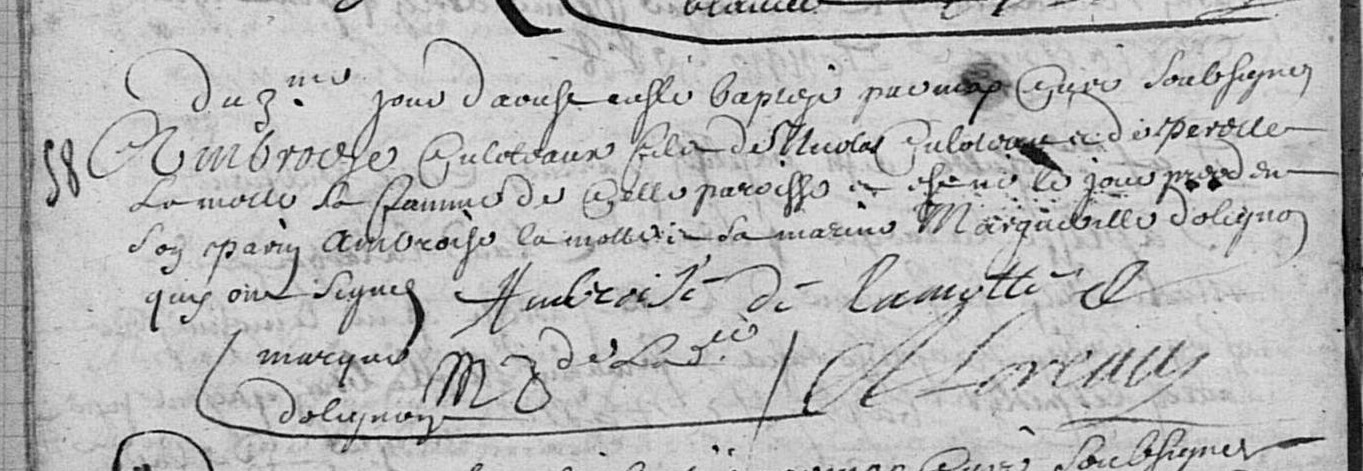 Du 3.me jour d'aoust a esté baptizé par moy Curé soubsigné
58 Ambroise Culoteaux fils de Nicolas Culoteau et de Perette
La motte sa famme de Celle paroisse et est né le jour preceden
son parin Ambroise la motte et sa marine Marguerille dolignon
quy ont signé Ambroise de lamotte
marque M D de La d.te
dolignon
Curé soubsigner